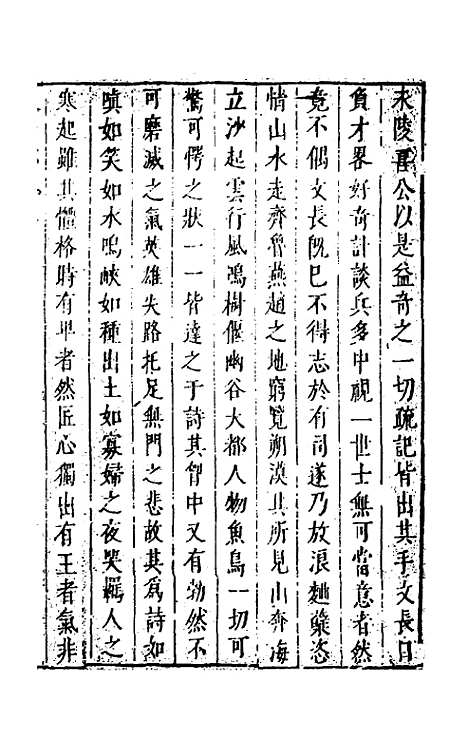 永陵喜公以是益奇之一切疏記皆出其手文長自
負才畧好奇計談兵多中視一世士無可當意者然
竟不偶文長既已不得志於有司遂乃放浪麯蘖恣
情山水走齊魯燕趙之地窮覽朔漠其所見山奔海
立沙起雲行風鳴樹偃幽谷大都人物魚鳥一切可
驚可愕之狀一一皆達之于詩其胷中又有勃然不
可磨滅之氣英雄失路托足無門之悲故其為詩如
嗔如笑如水鳴峽如種出土如寡婦之夜哭羈人之
寒起雖其體格時有卑者然匠心獨出有王者氣非